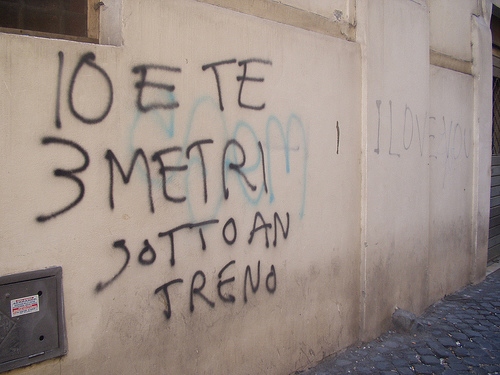 IO E TE
3 METRI
SOTTO AN
TRENO
I LOVE YOU